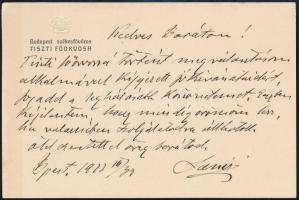 Budapest székesfőváros
TISZTI FŐORVOSA
Kedves Barátom!
Tiszti főorvossá történt megválasztásom
alkalmával kifejezett jókívánataidért,
fogadd a leghálásabb köszönetemet.
kijelentem, hogy mindig örömömre lesz,
ha valamiben szolgálatodra állhatok.
ölel szeretettel öreg barátod
Bpest. 19